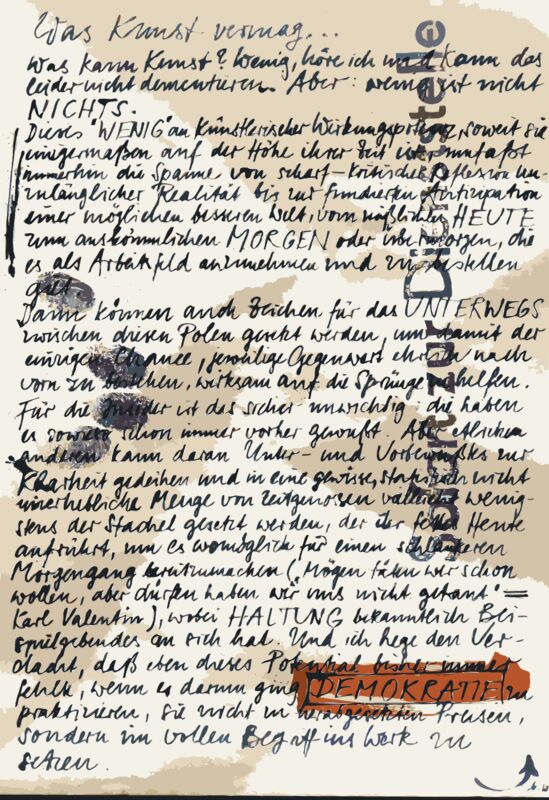 Was Kunst vermag...
Was kann Kunst? Wenig, höre ich und kann das
leider nicht dementieren. Aber: wenig ist nicht
NICHTS.
Dieses "WENIG" an künstlerischer Wirkungspotenz, soweit sie
einigermaßen auf der Höhe ihrer Zeit ist, umfaßt
immerhin die Spanne von scharf-kritischer Reflexion un-
zulänglicher Realität bis zur fundierten Antizipation
einer möglichen besseren Welt, vom mißlichen HEUTE
zum auskömmlichen MORGEN oder übermorgen, die
es als Arbeitsfeld anzunehmen und zu bestellen
gilt.
Dann können auch Zeichen für das UNTERWEGS
zwischen diesen Polen gesetzt werden, um damit der
einzigen Chance, jeweilige Gegenwart ehrlich nach
vorn zu bestehen, wirksam auf die Sprünge zu helfen.
Für die Insider ist das sicher unwichtig, die haben
es sowieso schon immer vorher gewußt. Aber etlichen
anderen kann daran Unter- und Vorbewußtes zur
Klarheit gedeihen und in eine gewisse, statistisch nicht
unerhebliche Menge von Zeitgenossen vielleicht wenig-
stens der Stachel gesetzt werden, der das fette Heute
aufrührt, um es womöglich für einen schlankeren
Morgengang bereitzumachen ("Mögen täten wir schon
wollen, aber dürfen haben wir uns nicht getraut" =
Karl Valentin), wobei HALTUNG bekanntlich Bei-
spielgebendes an sich hat. Und ich hege den Ver-
dacht, daß eben dieses Potential bisher immer
fehlte, wenn es darum ging DEMOKRATIE zu
praktizieren, sie nicht zu herabgesetzten Preisen,
sondern im vollen Begriff ins Werk zu
setzen.
zur Dienststelle